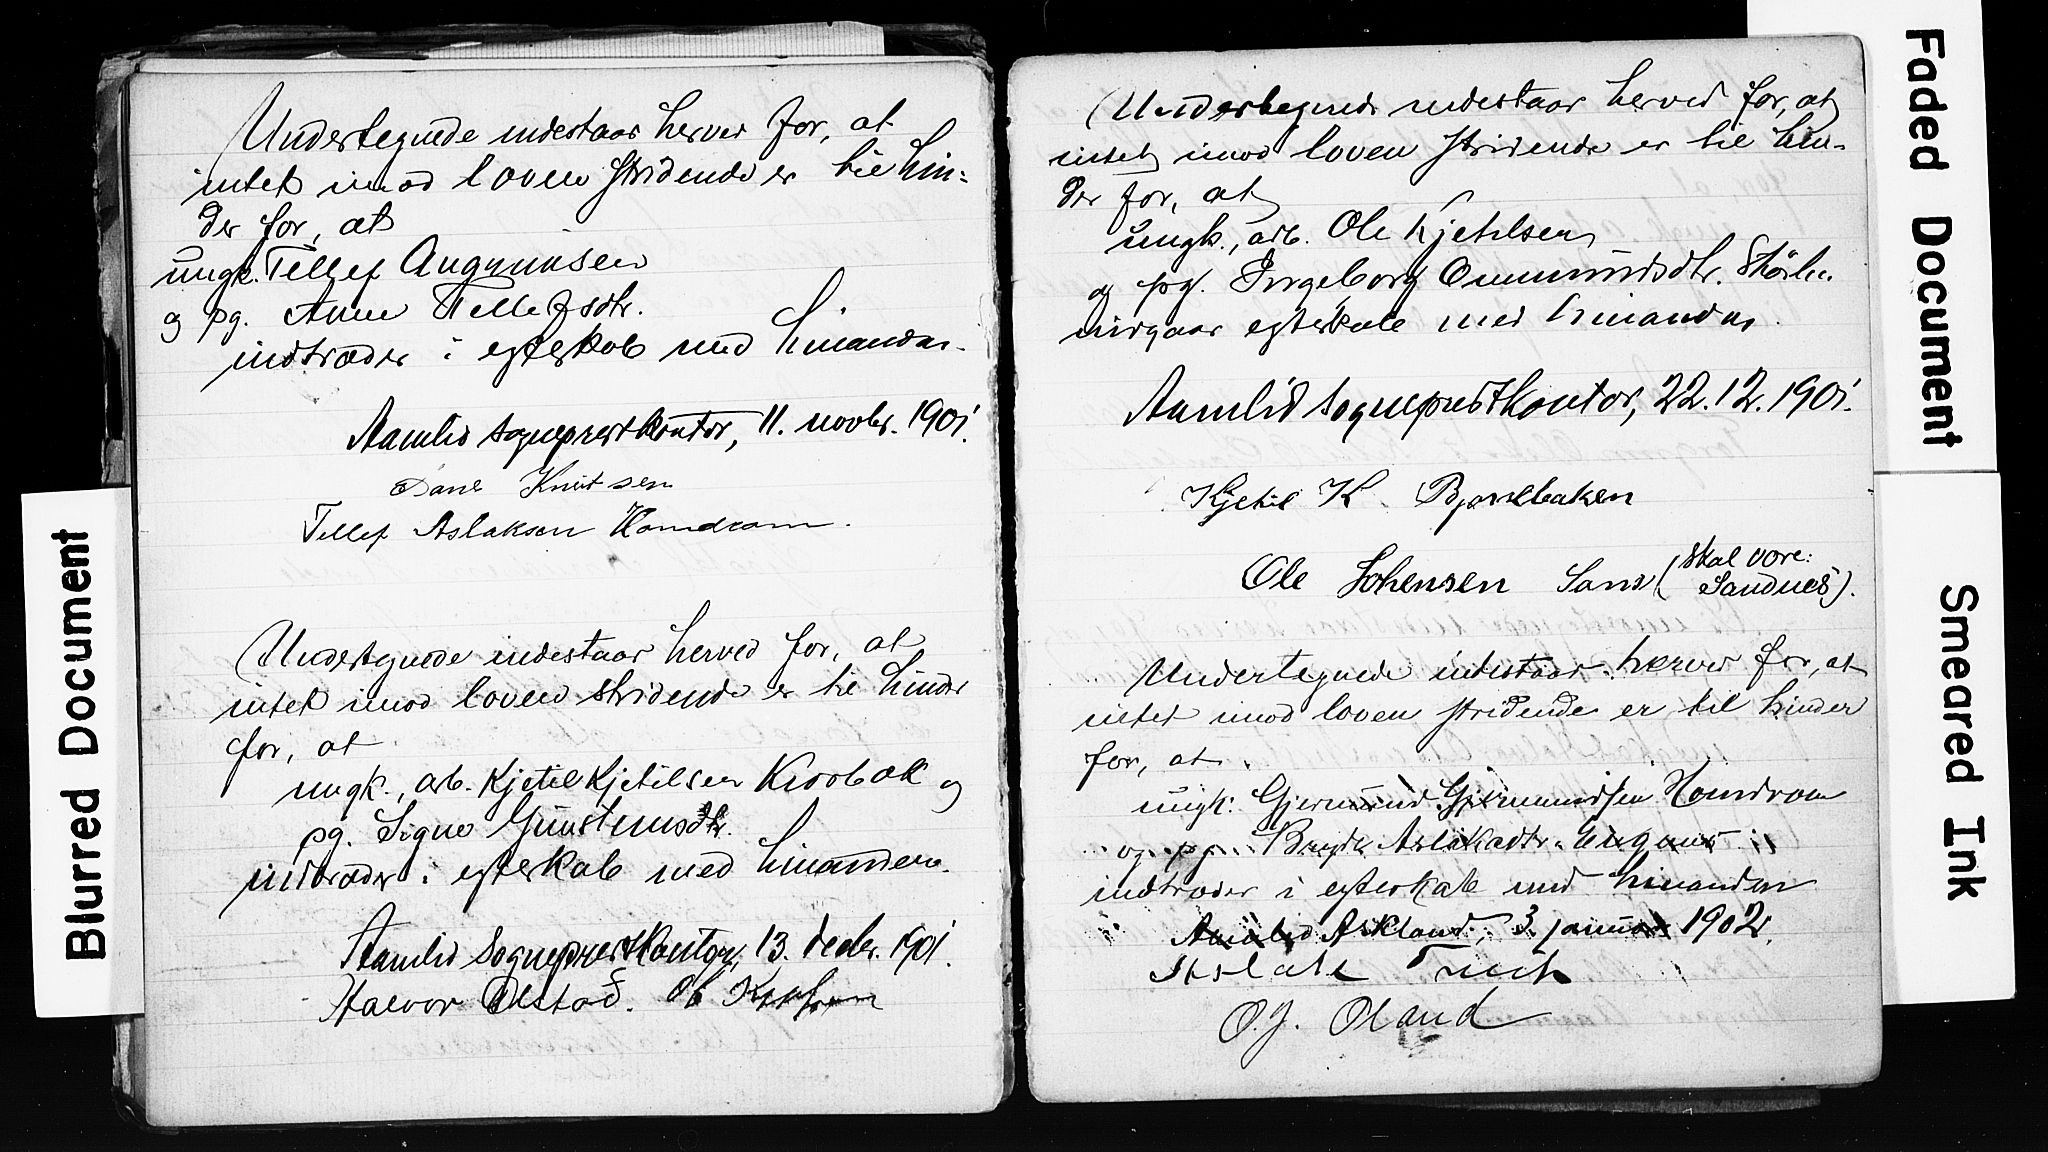 Undertegnede indestaar herved for, at
intet imod loven stridende er til hin=
der for, at
ungk. Tellef Augunnsen
og pg. Anne Tellefsdtr.
indtræder i egteskab med hinanden.
Aamlid sogneprestkontor, 11. novbr. 1901.
Knutsen
Tellef Aslaksen Homdrom.
Undertegnede indestaar herved for, at
intet imod loven stridende er til hinder
for, at
ungk., arb. Kjetil Kjetilsen og
pg. Signe Gunstensdtr.
indtræder i egteskab med hinanden.
Aamlid sogneprestkontor, 13. decbr. 1901.
Halvor Ølstad.
Undertegnede indestaar herved for, at
intet imod loven stridende er til hin-
der for, at
ungk., arb. Ole Kjetilsen
og pg. Ingeborg Ommundsdtr.
indgaar egteskab med hinanden.
Aamlid sogneprestkontor, 22.12.1901.
Kjetil K.
Ole Johensen Sans (skal være:
Sandnes).
Undertegnede indestaar herved for, at
intet imod loven stridende er til hinder
for, at
ungk. Gjermund Gjermundsen Homdrom
og pg. Aslaksdtr.
indtræder i egteskab med hinanden
Aamlid Askland, 3. januar 1902.
Aslak
O. J. Oland
Blurred Document
Faded Document
Smeared Ink